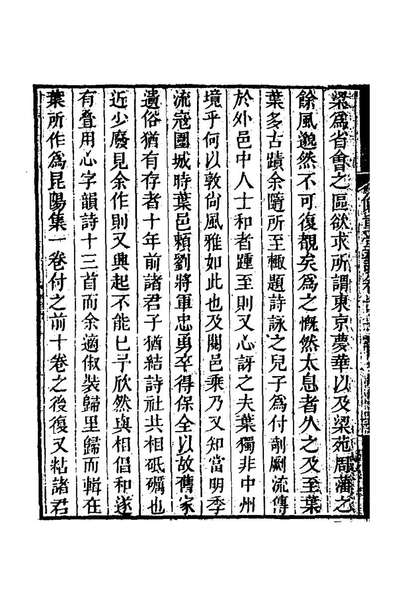 梁爲省會之區欲求所謂東京夢華以及梁苑周藩之
餘風邈然不可復覩矣爲之慨然太息者久之及至葉
葉多古蹟余隨所至輙題詩詠之兒子爲付剞劂流傳
於外邑中人士和者踵至則又心訝之夫葉獨非中州
境乎何以敦尚風雅如此也及閱邑乗乃又知當明季
流冦圍城時葉邑賴劉將軍忠勇卒得保全以故舊家
遺俗猶有存者十年前諸君子猶結詩社共相砥礪也
近少廢見余作則又興起不能已乎欣然與相倡和遂
有叠用心字韻詩十三首而余適俶裝歸里歸而輯在
葉所作爲昆陽集一卷付之前十卷之後復又粘諸君